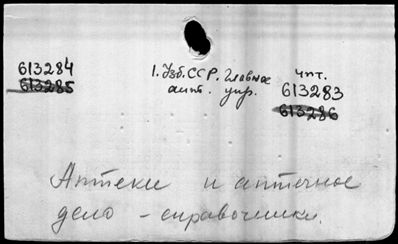 613284
613285
1. Узб.ССР. Главное
апт. упр.
чит.
613283
613286
Аптеки и аптечное
дело - справочники.